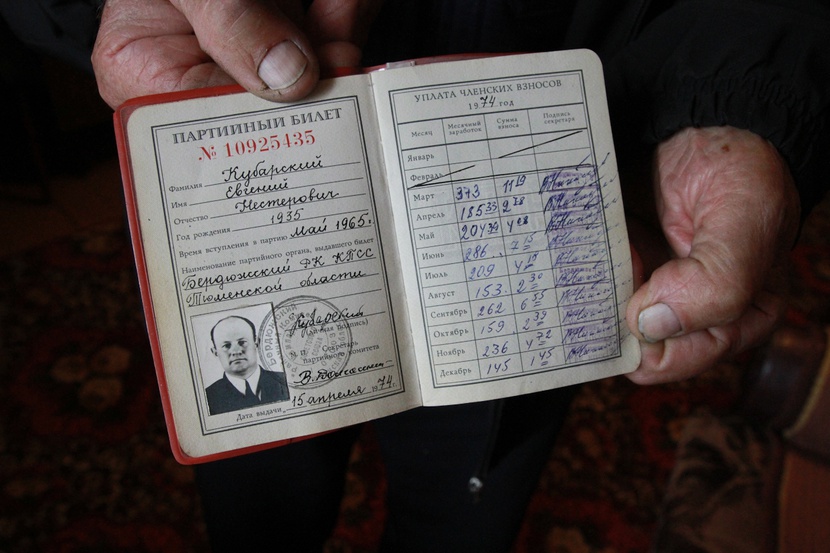 ПАРТИЙНЫЙ БИЛЕТ
№ 10925435
Фамилия Кубарский
Имя Евгений
Отчество Нестерович
Год рождения 1935
Время вступления в партию Май 1965 г.
Наименование партийного органа, выдавшего билет
Бердюжский РК КПСС
Тюменской области
(личная подпись)
М. П. Секретарь
партийного комитета
Дата выдачи 15 апреля 1974 г.
УПЛАТА ЧЛЕНСКИХ ВЗНОСОВ
1974 год
Месяц Месячный заработок Сумма взноса Подпись секретаря
Январь
Февраль
Март 373 11 19
Апрель 185 33
Май 204
Июнь 286 7 15
Июль 209 4 18
Август 153 2 30
Сентябрь 262 6 55
Октябрь 159 2 39
Ноябрь 236 4 72
Декабрь 145 1 45